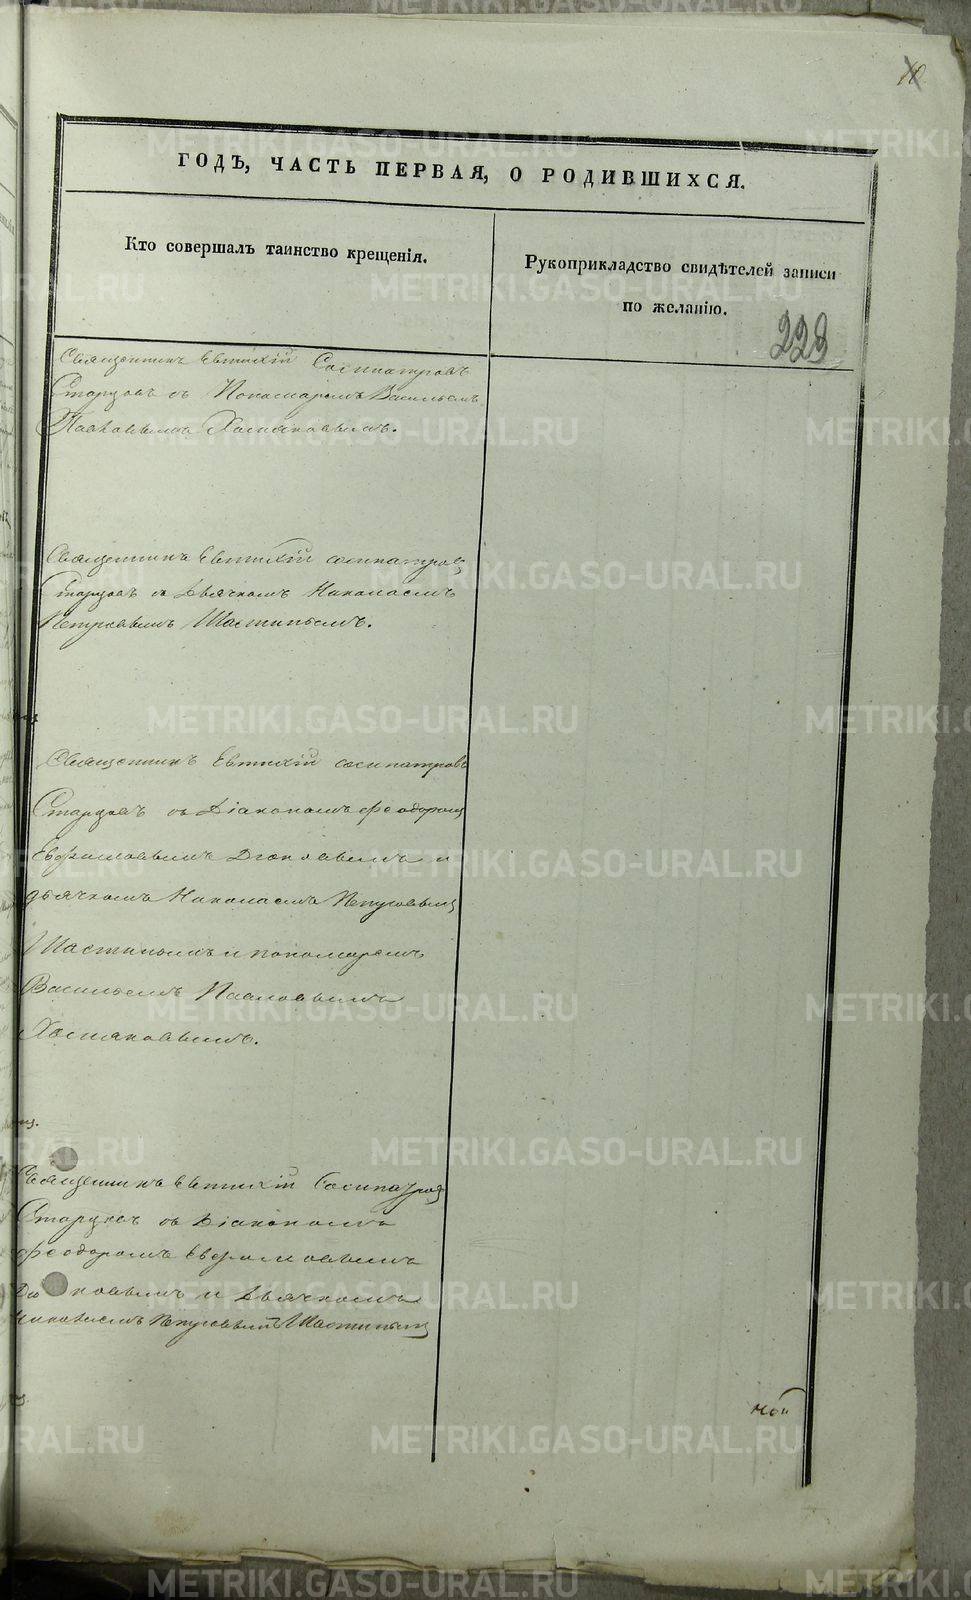 ГОДЪ, ЧАСТЬ ПЕРВАЯ, О РОДИВШИХСЯ.
Кто совершалъ таинство крещенія.
Рукоприкладство свидѣтелей записи
по желанію.
229
Священникъ Евтихій Сосипатровъ
Старцовъ съ Пономаремъ Васильемъ
Павловымъ Хомяковымъ.
Священникъ Евтихій Сосипатровъ
Старцовъ съ Дьячкомъ Николаемъ
Петровымъ Шастинымъ.
Священникъ Евтихій Сосипатровъ
Старцовъ съ Діакономъ Феодоромъ
Евфимовымъ и
дьячкомъ Николаемъ Петровымъ
Шастинымъ и пономаремъ
Васильемъ Павловымъ
Хомяковымъ.
Священникъ Евтихій Сосипатровъ
Старцовъ съ Діакономъ
Феодоромъ
и Дьячкомъ
Николаемъ Петровымъ Шастинымъ
METRIKI.GASO-URAL.RU